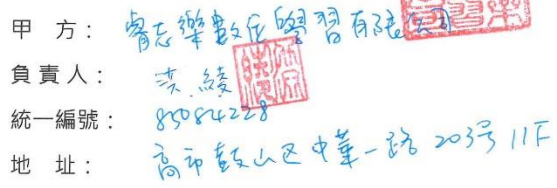 甲 方: 睿志樂數位學習有限公司
負責人: 綾
統一編號: 85084228
地 址: 高市鼓山区中華一路 203号 11F